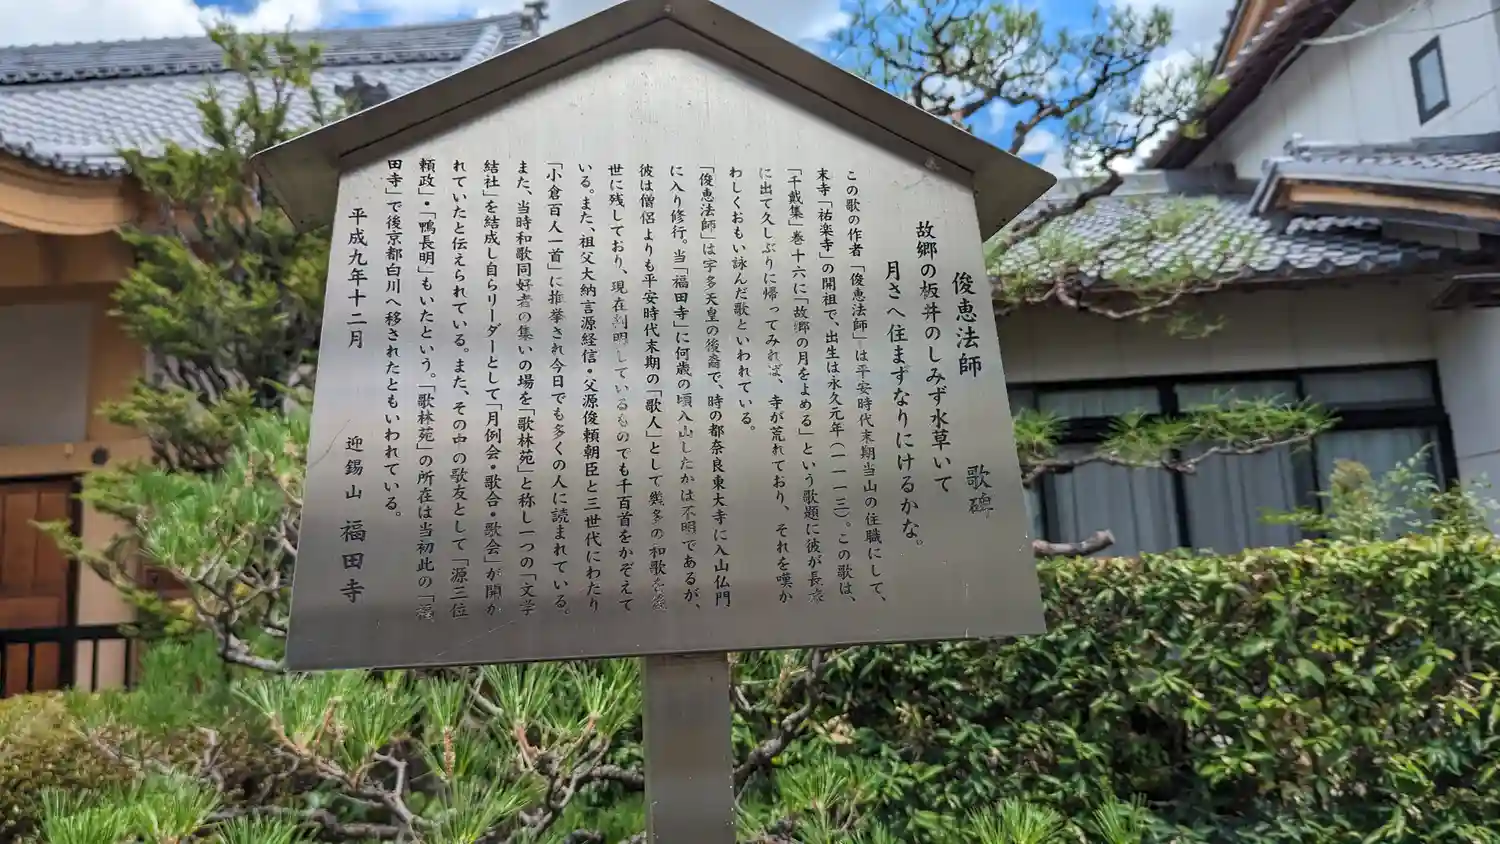 俊恵法師 歌碑
故郷の板井のしみず水草いて
月さへ住まずなりにけるかな。
この歌の作者「俊恵法師」は平安時代末期当山の住職にして、
末寺「祐楽寺」の開祖で、出生は永久元年(一一一三)。この歌は、
「千戴集」巻十六に「故郷の月をよめる」という歌題に彼が長旅
に出て久しぶりに帰ってみれば、寺が荒れており、それを嘆か
わしくおもい詠んだ歌といわれている。
「俊恵法師」は宇多天皇の後裔で、時の都奈良東大寺に入山仏門
に入り修行。当「福田寺」に何歳の頃入山したかは不明であるが、
彼は僧侶よりも平安時代末期の「歌人」として幾多の和歌を後
世に残しており、現在判明しているものでも千百首をかぞえて
いる。また、祖父大納言源経信・父源俊頼朝臣と三世代にわたり
「小倉百人一首」に推挙され今日でも多くの人に読まれている。
また、当時和歌同好者の集いの場を「歌林苑」と称し一つの「文学
結社」を結成し自らリーダーとして「月例会・歌合・歌会」が開か
れていたと伝えられている。また、その中の歌友として「源三位
頼政」・「鴨長明」もいたという。「歌林苑」の所在は当初此の「福
田寺」で後京都白川へ移されたともいわれている。
平成九年十二月 迎錫山 福田寺